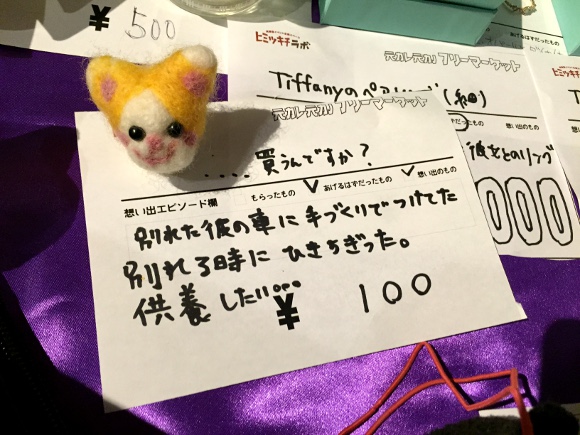 ¥500
ヒミツキチラボ
ヒミツキチラボ
元カレ元カノ フリーマーケット
Tiffanyのペアリング(細)
元カレ元カノ フリーマーケット
想い出のもの
....買うんですか?
想い出エピソード欄
もらったもの
あげるはずだったもの
想い出のもの
別れた彼の車に手づくりでつけてた
別れる時にひきちぎった。
供養したい...
¥100
000